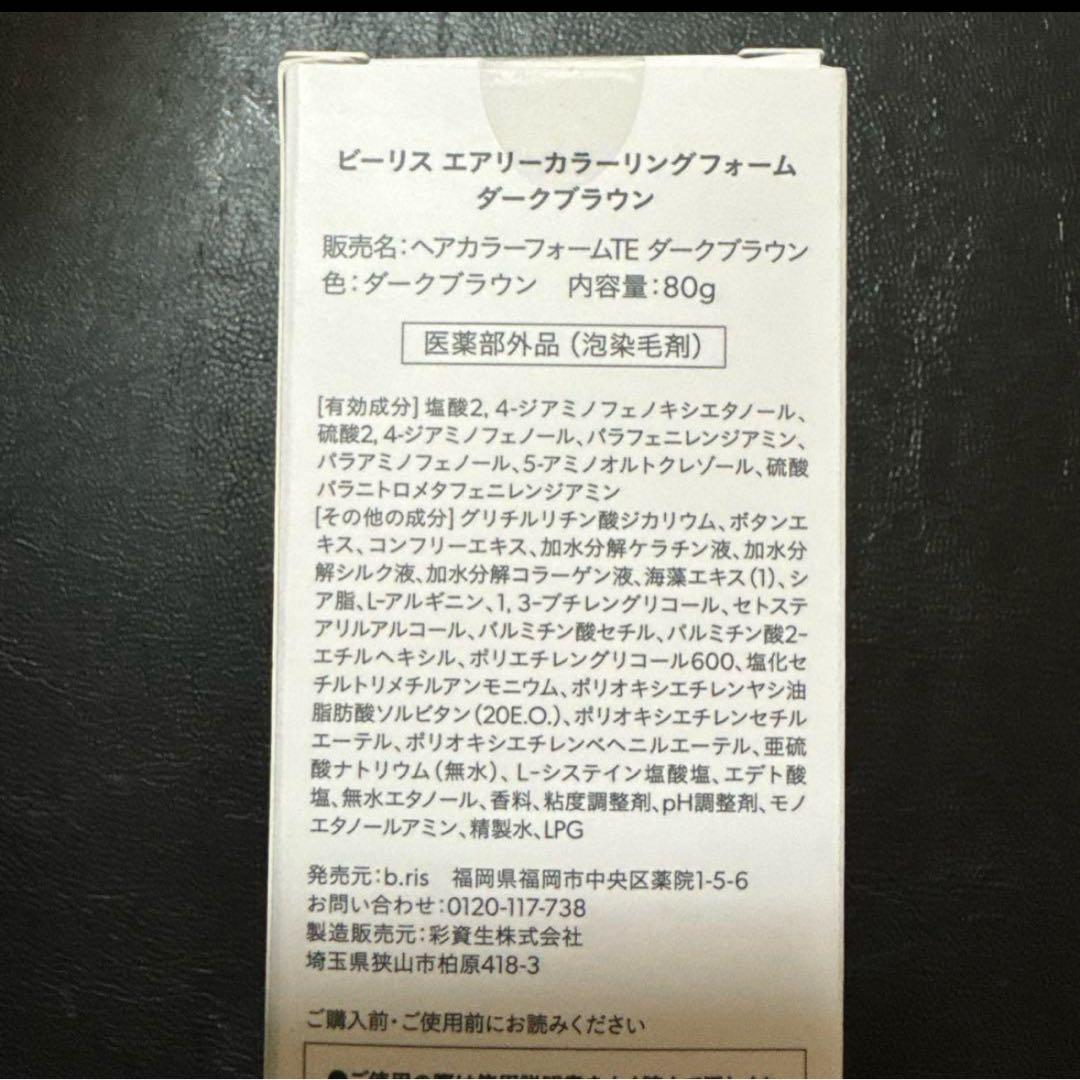 ビーリス エアリーカラーリングフォーム
ダークブラウン
販売名:ヘアカラーフォームTE ダークブラウン
色:ダークブラウン 内容量:80g
医薬部外品(泡染毛剤)
[有効成分] 塩酸2, 4-ジアミノフェノキシエタノール、
硫酸2, 4-ジアミノフェノール、パラフェニレンジアミン、
パラアミノフェノール、5-アミノオルトクレゾール、硫酸
パラニトロメタフェニレンジアミン
[その他の成分] グリチルリチン酸ジカリウム、ボタンエ
キス、コンフリーエキス、加水分解ケラチン液、加水分
解シルク液、加水分解コラーゲン液、海藻エキス(1)、シ
ア脂、L-アルギニン、1, 3-ブチレングリコール、セトステ
アリルアルコール、パルミチン酸セチル、パルミチン酸2-
エチルヘキシル、ポリエチレングリコール600、塩化セ
チルトリメチルアンモニウム、ポリオキシエチレンヤシ油
脂肪酸ソルビタン(20E.O.)、ポリオキシエチレンセチル
エーテル、ポリオキシエチレンベヘニルエーテル、亜硫
酸ナトリウム(無水)、L-システイン塩酸塩、エデト酸
塩、無水エタノール、香料、粘度調整剤、pH調整剤、モノ
エタノールアミン、精製水、LPG
発売元:b.ris 福岡県福岡市中央区薬院1-5-6
お問い合わせ:0120-117-738
製造販売元:彩資生株式会社
埼玉県狭山市柏原418-3
ご購入前・ご使用前にお読みください